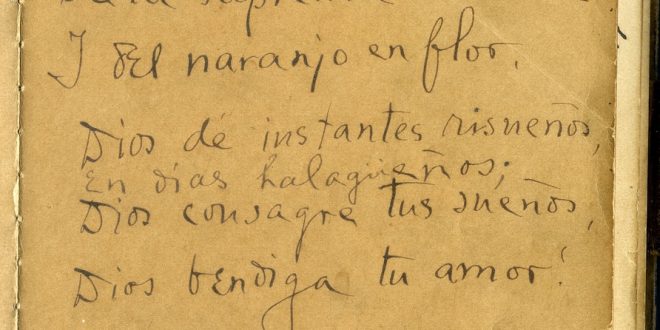 I del naranjo en flor.
Dios dé instantes risueños,
En días halagüeños;
Dios consagre tus sueños,
Dios bendiga tu amor!